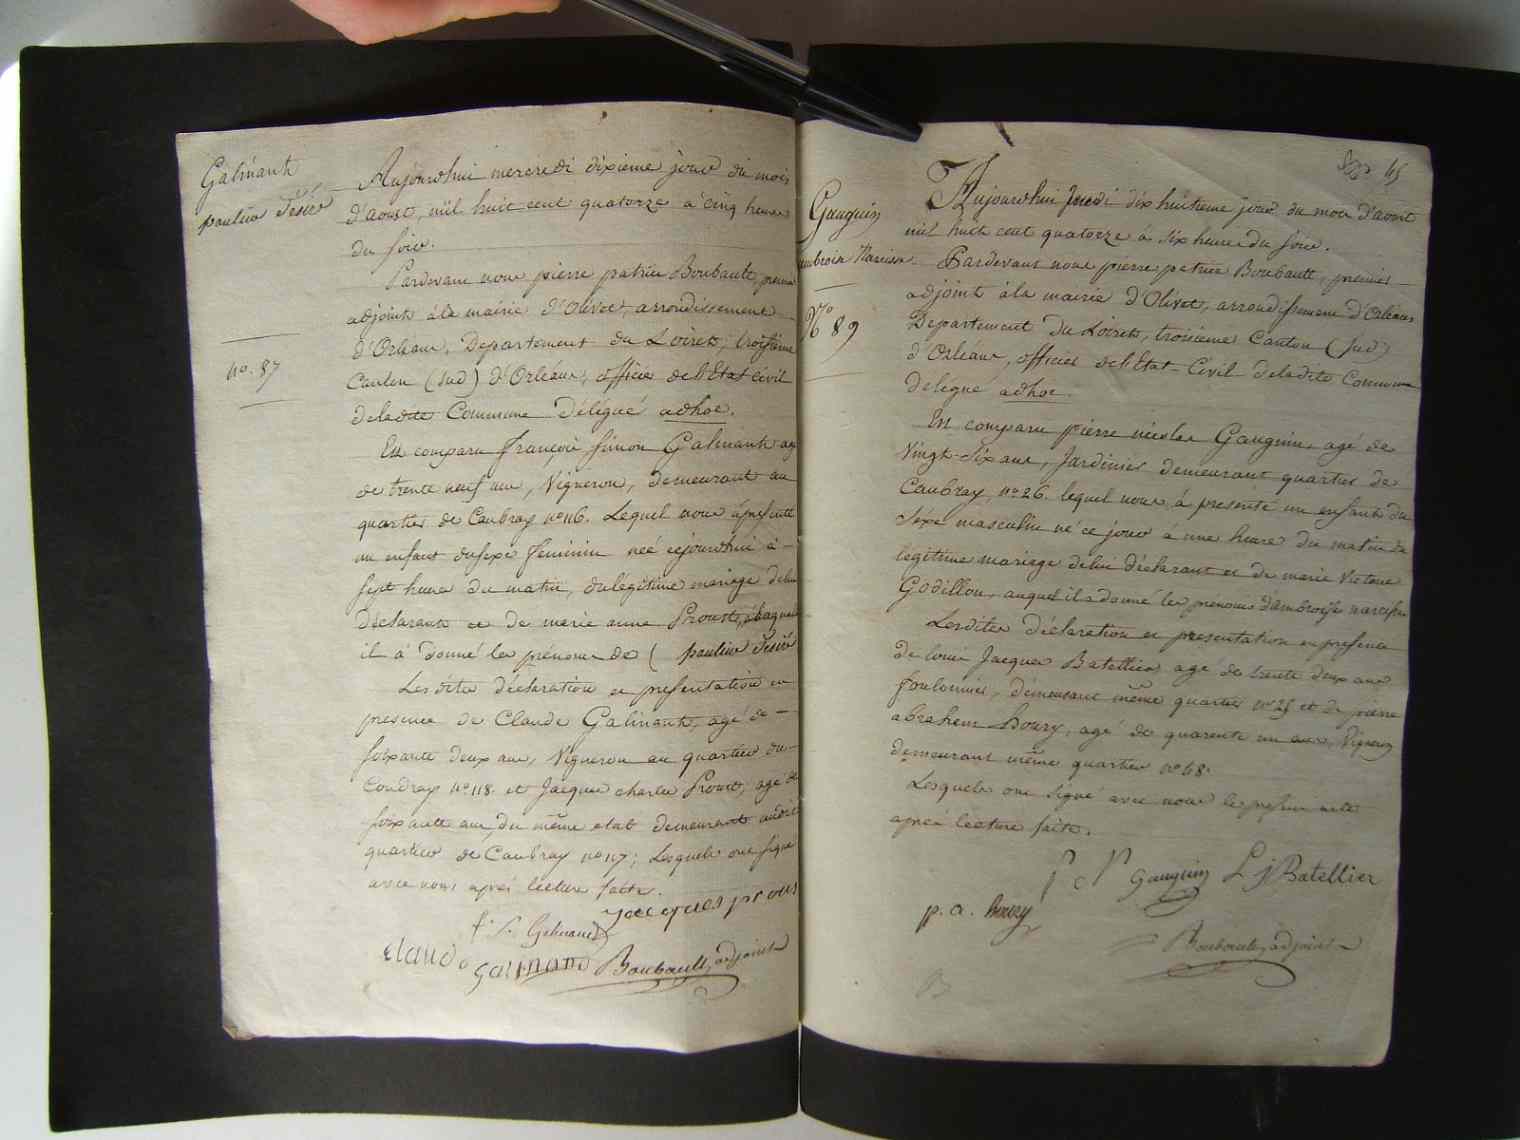 Galmant
pauline
Aujourdhui mercredi dixieme jour du mois
d'aoust, mil huit cent quatorze à cinq heures
du soir.
Pardevant nous pierre patrice Boubault, premier
adjoint à la mairie d'Olivet, arrondissement
d'Orléans, Departement du Loiret, troisième
Canton (Sud) d'Orléans, officier de l'Etat Civil
de ladite Commune délégué adhoc.
no. 87
Est comparu françois Simon Galmant agé
de trente neuf ans, Vigneron, demeurant au
quartier de Caubray no 116. Lequel nous a presenté
un enfant du sexe feminin née cejourdhui à
sept heures du matin, du légitime mariage de lui
déclarant et de marie anne Proust, à laquelle
il a donné les prénoms de ( pauline
Lesdites déclaration et presentation en
presence de Claude Galmant, agé de
soixante deux ans, Vigneron au quartier du
Coudray no 118. et Jacques charles Proust, agé de
soixante ans, du même etat demeurant audit
quartier de Caubray no 117; Lesquels ont signé
avec nous après lecture faite.
jacques prous
f. S. Galmant
claude galmand Boubault, adjoint
45
Gauguin
ambroise Narcisse
No 89
Aujourdhui Jeudi dix huitieme jour du mois d'aoust
mil huit cent quatorze à six heures du soir.
Pardevant nous pierre patrice Boubault, premier
adjoint à la mairie d'Olivet, arrondissement d'Orléans
Departement du Loiret, troisieme Canton (Sud)
d'Orléans, officier de l'Etat-Civil de ladite Commune
délegué adhoc.
Est comparu pierre nicolas Gauguin, agé de
Vingt-Six ans, Jardinier demeurant quartier de
Caubray, no 26. lequel nous a presenté un enfant du
Sexe masculin né ce jour à une heure du matin du
legitime mariage de lui déclarant et de marie Victoire
Godillon, auquel il a donné les prénoms d'ambroise narcisse
Lesdites déclaration et presentation en presence
de louis Jacques Batellier agé de trente deux ans
demeurant même quartier no 25 et de pierre
abraham houry, agé de quarente un ans, Vigneron
demeurant même quartier no 68.
Lesquels ont signé avec nous le present acte
après lecture faite.
P N gauguin L j Batellier
p. a. houry
Boubault, adjoint